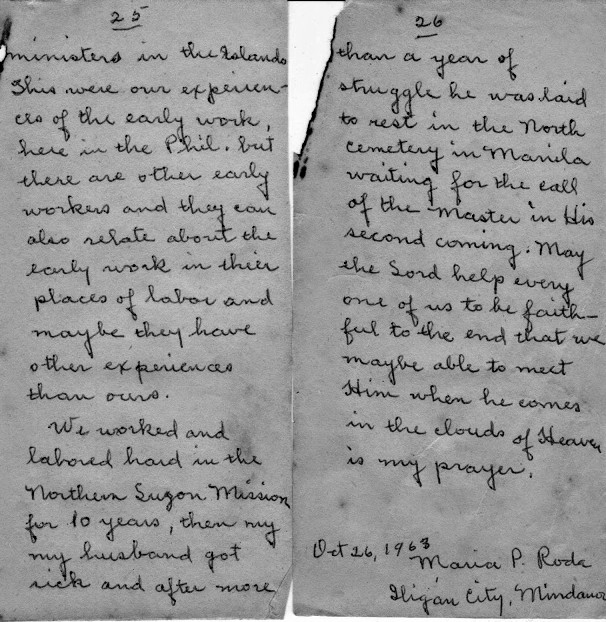 25
ministers in the Islands
This were our experien-
ces of the early work,
here in the Phil. but
there are other early
workers and they can
also relate about the
early work in their
places of labor and
maybe they have
other experiences
than ours.
We worked and
labored hard in the
Northern Luzon Mission
for 10 years, then my
my husband got
sick and after more
26
than a year of
struggle he was laid
to rest in the North
cemetery in Manila
waiting for the call
of the Master in His
second coming. May
the Lord help every
one of us to be faith-
ful to the end that we
maybe able to meet
Him when he comes
in the clouds of Heaven
is my prayer.
Oct 26, 1963
Maria P. Roda
Iligan City, Mindanao